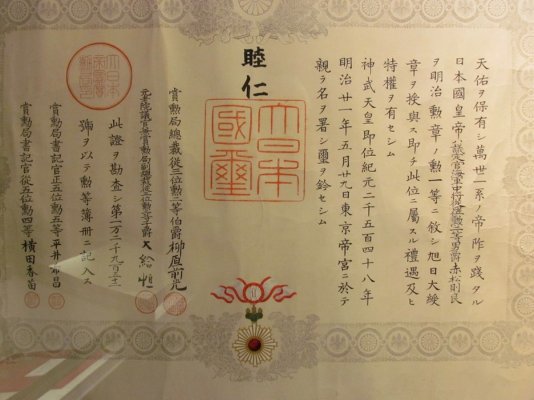 天佑ヲ保有シ萬世一系ノ帝祚ヲ踐タル
日本國皇帝ハ議定官海軍中将従三位勲二等男爵赤松則良
ヲ明治勲章ノ勲一等ニ敘シ旭日大綬
章ヲ授與ス即チ此位ニ屬スル禮遇及ヒ
特權ヲ有セシム
神武天皇即位紀元二千五百四十八年
明治廿一年五月廿九日東京帝宮ニ於テ
親ラ名ヲ署シ璽ヲ鈐セシム
睦仁
大日本國璽
賞勲局總裁従二位勲一等伯爵柳原前光
大給恒
此證ヲ勘査シ第一万二千九百
號ヲ以テ勲等簿冊ニ記入ス
賞勲局書記官正五位勲五等平井希昌
賞勲局書記官従五位勲四等横田香苗